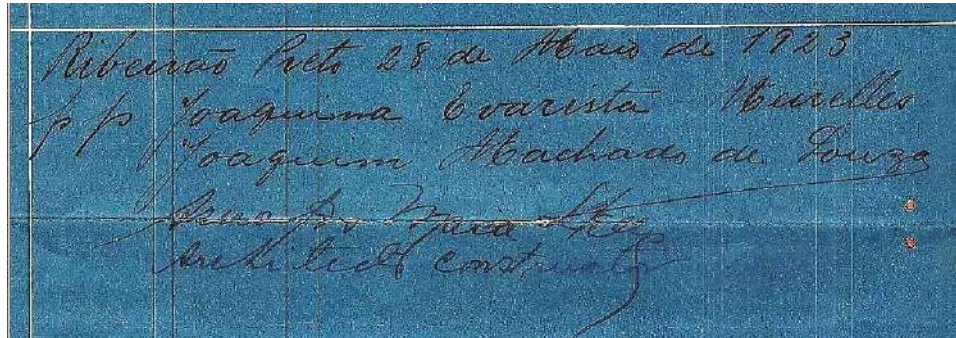 Ribeirão Preto 28 de Maio de 1923
p p Joaquina Evarista Meirelles
Joaquim Machado de Souza
Architecto constructor